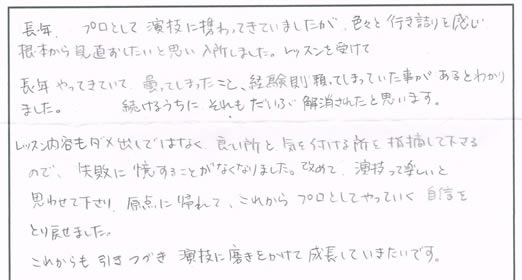 長年、プロとして演技に携わってきていましたが、色々と行き詰りを感じ
根本から見直おしたいと思い入所しました。レッスンを受けて
長年やってきていて、曇ってしまったこと、経験則頼ってしまっていた事があるとわかり
ました。 続けるうちにそれもだいぶ解消されたと思います。
レッスン内容もダメ出しではなく、良い所と気を付ける所を指摘して下さる
ので、失敗に憶することがなくなりました。改めて、演技って楽しいと
思わせて下さり、原点に帰れて、これからプロとしてやっていく自信を
とり戻せました。
これからも引きつづき演技に磨きをかけて成長していきたいです。